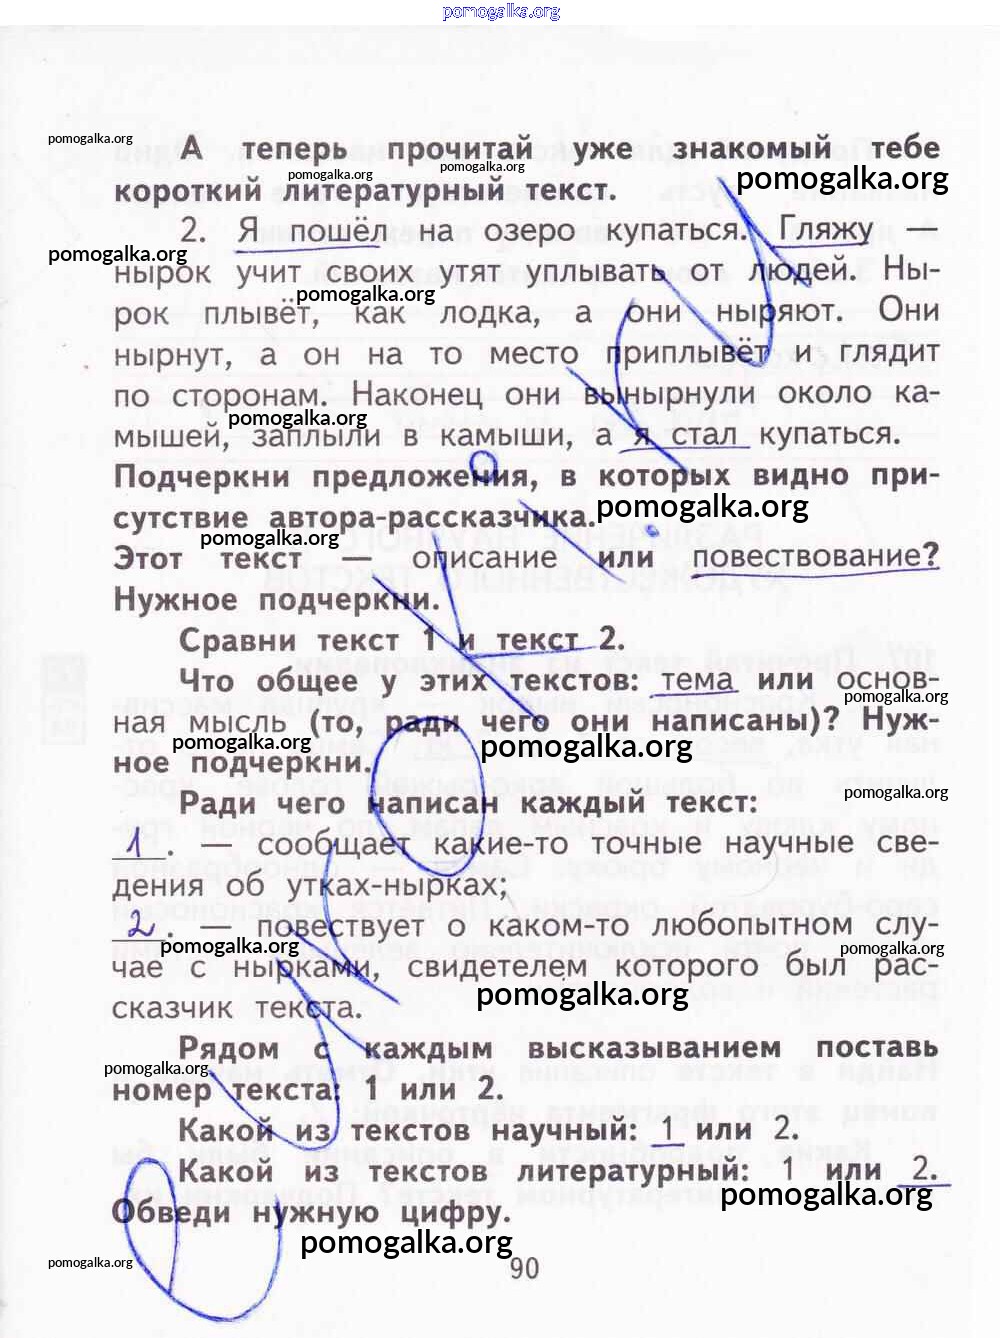 pomogalka.org
pomogalka.org
А теперь прочитай уже знакомый тебе
pomogalka.org pomogalka.org
короткий литературный текст. pomogalka.org
2. Я пошёл на озеро купаться. Гляжу —
pomogalka.org
нырок учит своих утят уплывать от людей. Ны-
pomogalka.org
рок плывёт, как лодка, а они ныряют. Они
нырнут, а он на то место приплывёт и глядит
по сторонам. Наконец они вынырнули около ка-
pomogalka.org
мышей, заплыли в камыши, а я стал купаться.
Подчеркни предложения, в которых видно при-
сутствие автора-рассказчика. pomogalka.org
pomogalka.org
Этот текст — описание или повествование?
Нужное подчеркни.
Сравни текст 1 и текст 2.
Что общее у этих текстов: тема или основ-
pomogalka.org
ная мысль (то, ради чего они написаны)? Нуж-
pomogalka.org pomogalka.org
ное подчеркни.
pomogalka.org
Ради чего написан каждый текст:
1. — сообщает какие-то точные научные све-
дения об утках-нырках;
2. — повествует о каком-то любопытном слу-
pomogalka.org pomogalka.org
чае с нырками, свидетелем которого был рас-
pomogalka.org
сказчик текста.
Рядом с каждым высказыванием поставь
pomogalka.org
номер текста: 1 или 2.
Какой из текстов научный: 1 или 2.
Какой из текстов литературный: 1 или 2.
pomogalka.org
Обведи нужную цифру.
pomogalka.org
pomogalka.org
90